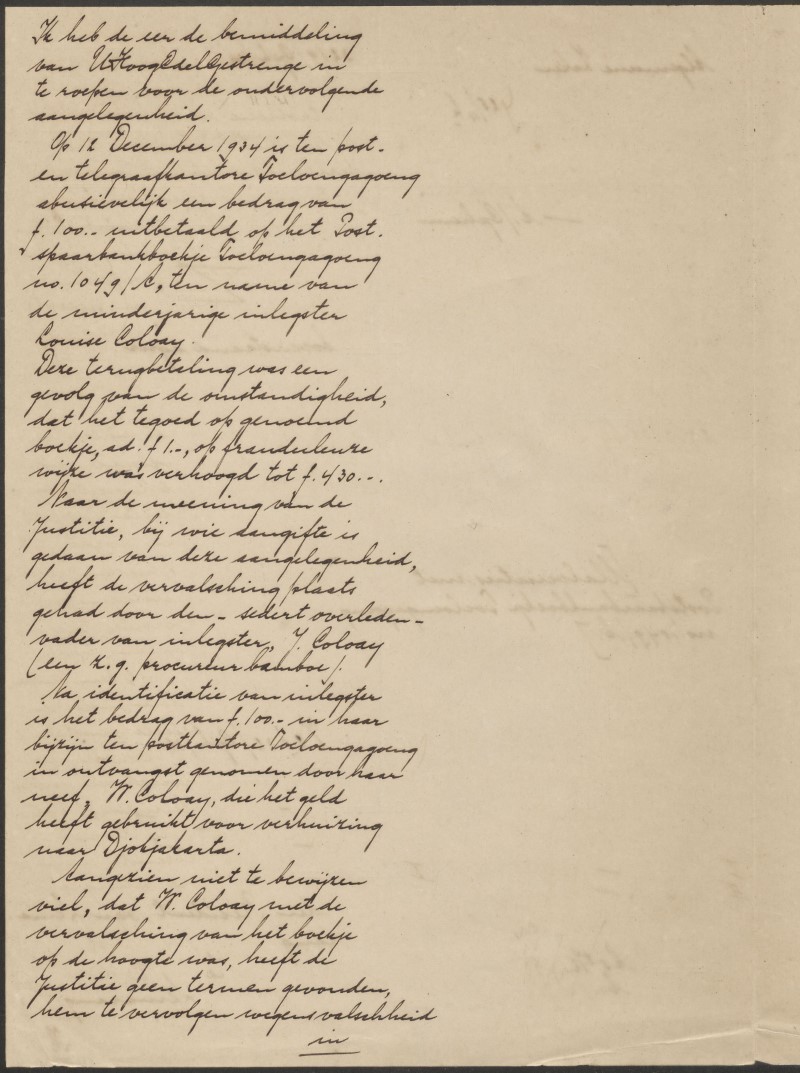 Ik heb de eer de bemiddeling
van UHoogEdelGestrenge in
te roepen voor de ondervolgende
aangelegenheid.
Op 12 December 1934 is ten post-
en telegraafkantore Toeloengagoeng
abusievelijk een bedrag van
f. 100.- uitbetaald op het Post-
spaarbankboekje Toeloengagoeng
no. 1049/C, ten name van
de minderjarige inlegster
Louise Coloay.
Deze terugbetaling was een
gevolg van de omstandigheid,
dat het tegoed op genoemd
boekje, ad. f 1.-, op frauduleuze
wijze was verhoogd tot f. 430.-.
Naar de meening van de
Justitie, bij wie aangifte is
gedaan van deze aangelegenheid,
heeft de vervalsching plaats
gehad door den - sedert overleden -
vader van inlegster, J. Coloay
(een z.g. procureur bamboe).
Na identificatie van inlegster
is het bedrag van f. 100.- in haar
bijzijn ten postkantore Toeloengagoeng
in ontvangst genomen door haar
neef, W. Coloay, die het geld
heeft gebruikt voor verhuizing
naar Djokjakarta.
Aangezien niet te bewijzen
viel, dat W. Coloay met de
vervalsching van het boekje
op de hoogte was, heeft de
Justitie geen termen gevonden,
hem te vervolgen wegens valschheid
in